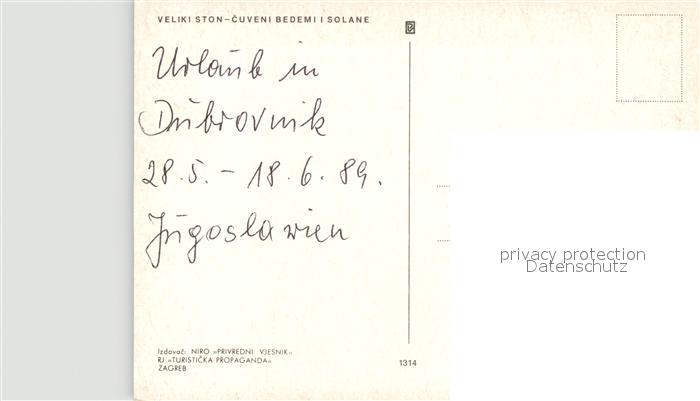 VELIKI STON–ČUVENI BEDEMI I SOLANE
Urlaub in
Dubrovnik
28.5. – 18.6.89.
Jugoslawien
privacy protection
Datenschutz
Izdavač: NIRO »PRIVREDNI VJESNIK«
RJ »TURISTIČKA PROPAGANDA«
ZAGREB
1314